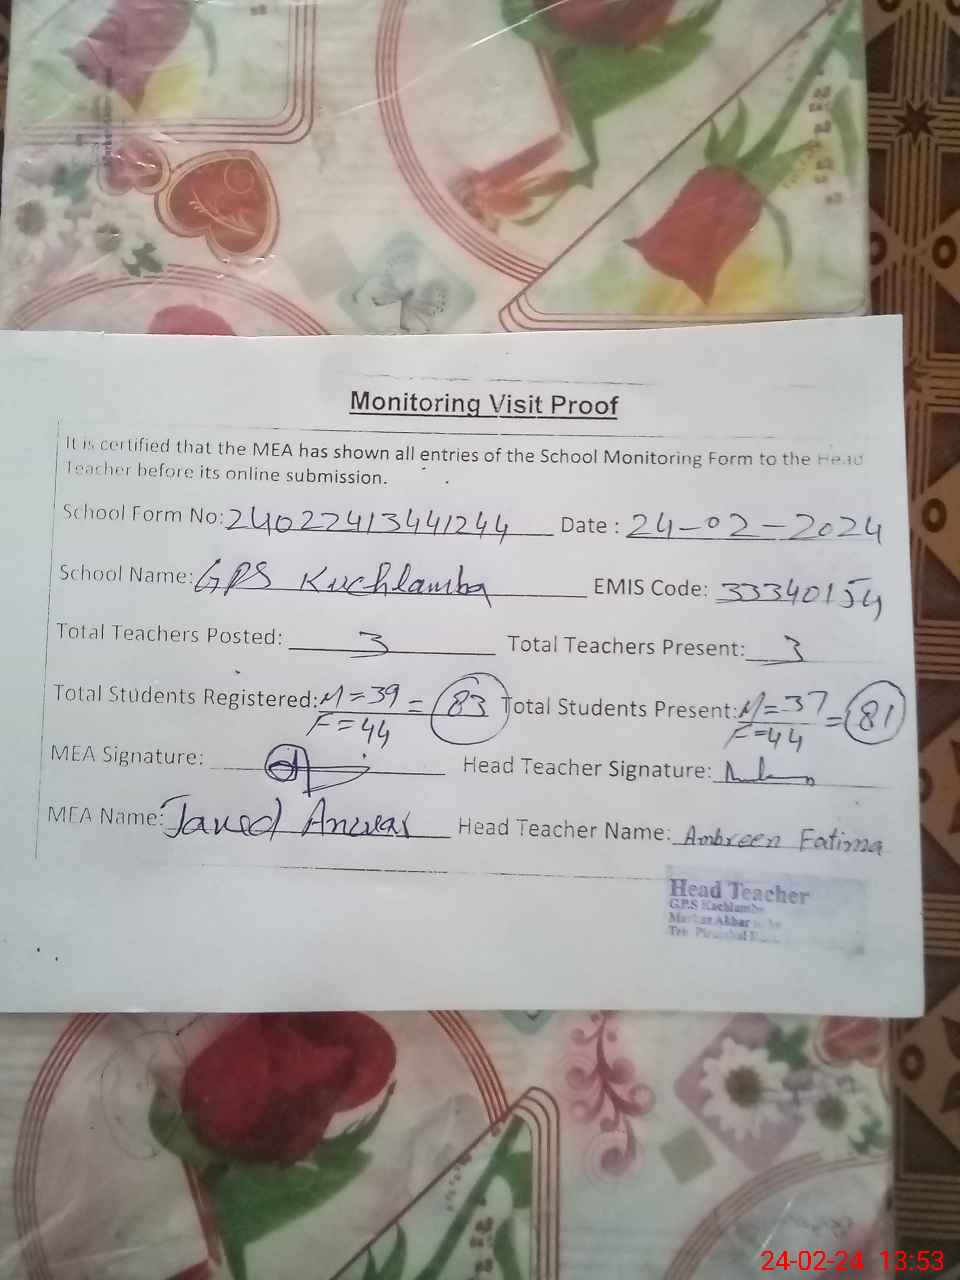 Monitoring Visit Proof
It is certified that the MEA has shown all entries of the School Monitoring Form to the Head
Teacher before its online submission.
School Form No: 240227413441244 Date : 24-02-2024
School Name: GPS Kuchlamba EMIS Code: 33340154
Total Teachers Posted: 3 Total Teachers Present: 3
Total Students Registered: M=39 = 83 Total Students Present: M=37 = 81
F=44 F=44
MEA Signature: Head Teacher Signature:
MEA Name: Javed Anwar Head Teacher Name: Ambreen Fatima
Head Teacher
G.P.S Kachlamba
Markaz Akbar
Teh
24-02-24 13:53